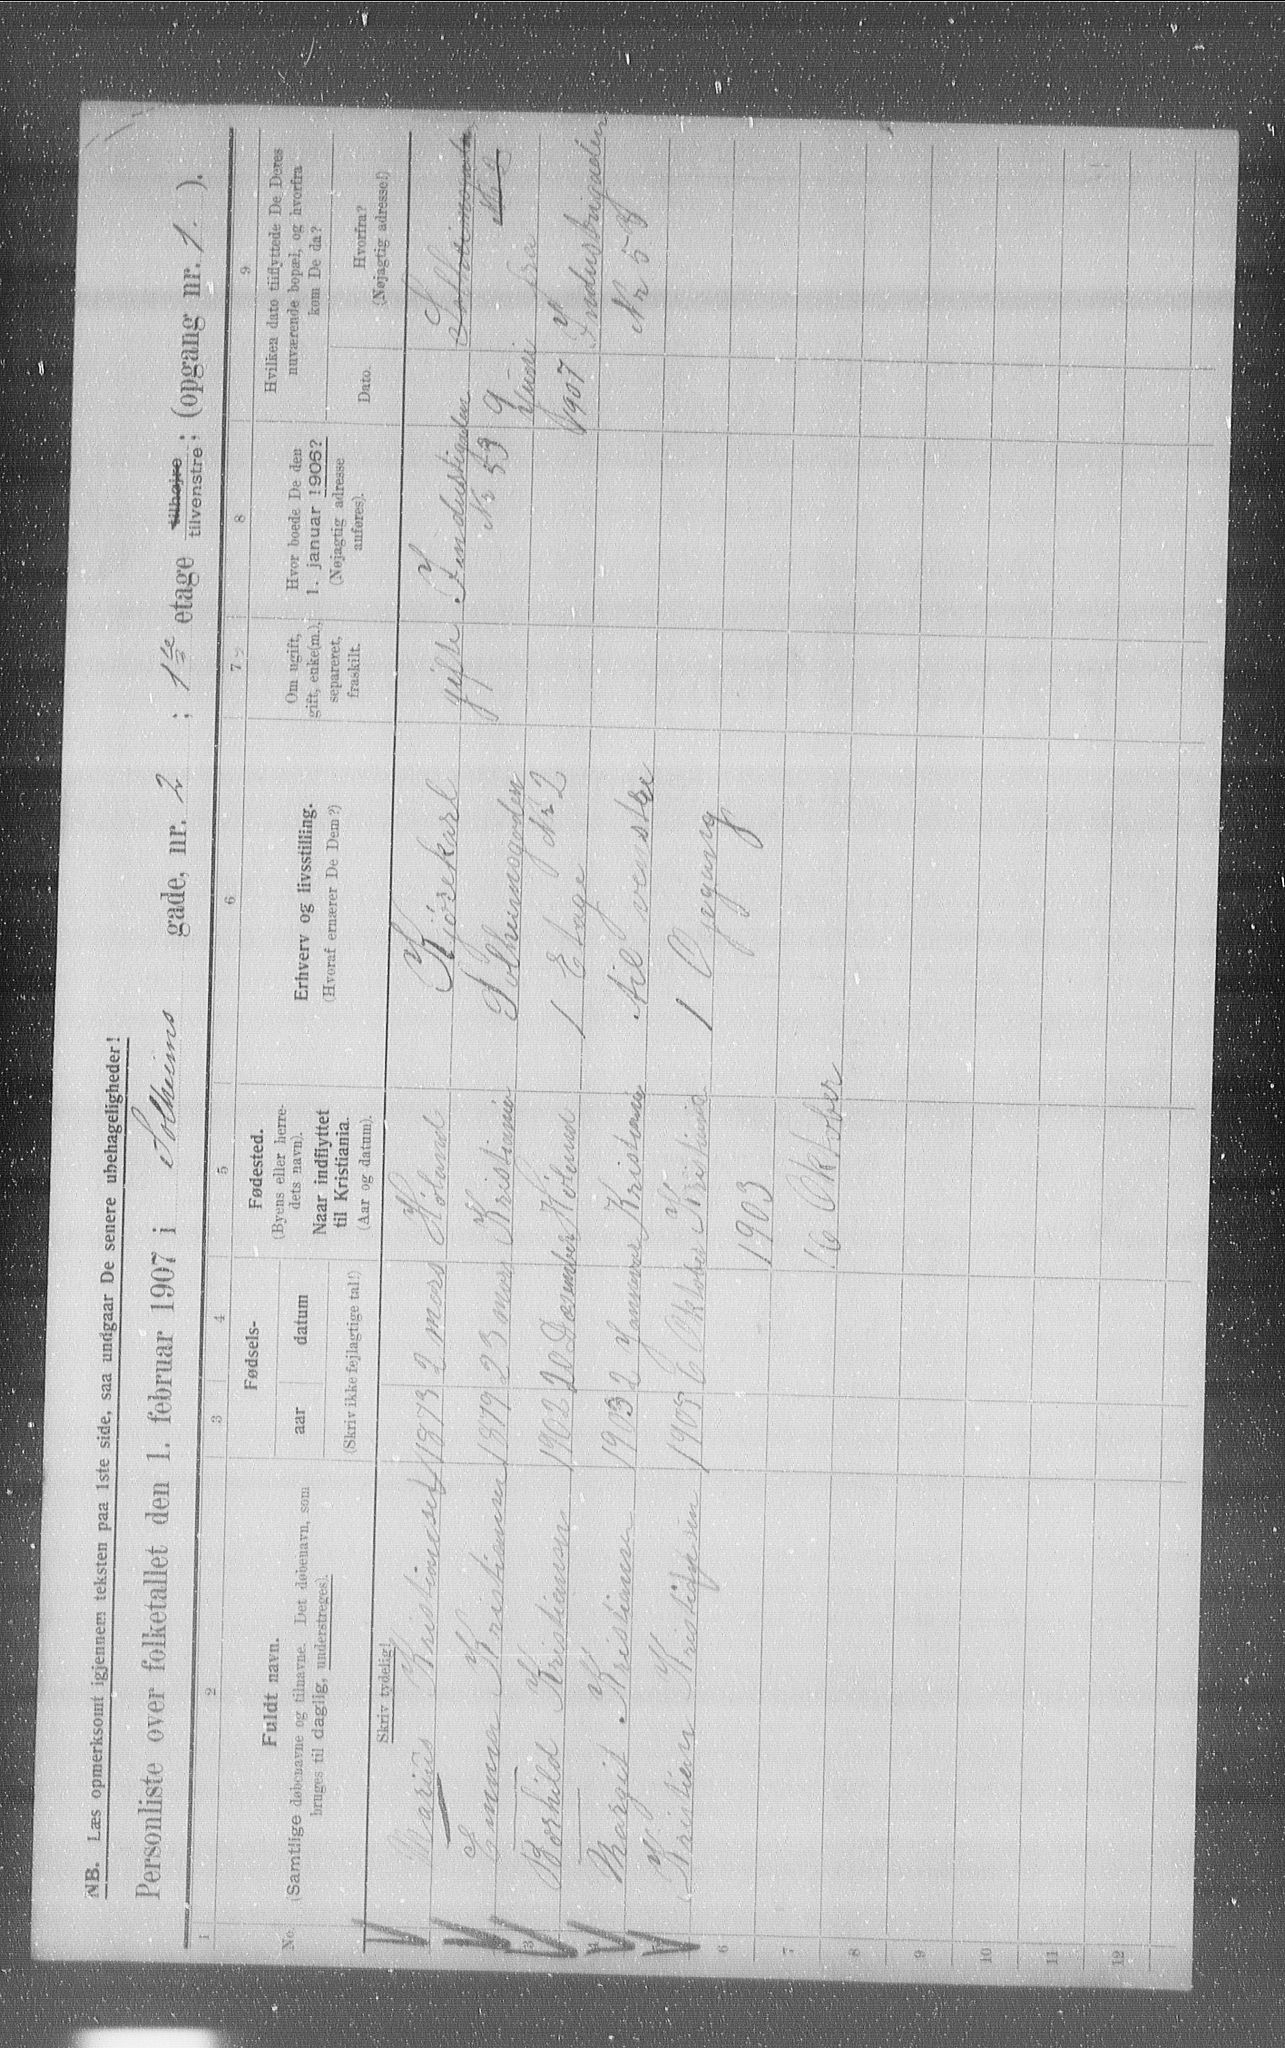 NB. Læs opmerksomt igjennem teksten paa 1ste side, saa undgaar De senere ubehageligheder!
Personliste over folketallet den 1. februar 1907 i Solheims gade, nr. 2 ; 1ste etage tilhøjre tilvenstre ; (opgang nr. 1. ).
1 2 3 4 5 6 7 8 9
No.
Fuldt navn.
(Samtlige døbenavne og tilnavne. Det døbenavn, som
bruges til daglig, understreges).
Skriv tydelig!
Fødsels-
aar datum
(Skriv ikke fejlagtige tal!)
Fødested.
(Byens eller herre-
dets navn).
Naar indflyttet
til Kristiania.
(Aar og datum).
Erhverv og livsstilling.
(Hvoraf ernærer De Dem?)
Om ugift,
gift, enke(m.),
separeret,
fraskilt.
Hvor boede De den
1. januar 1906?
(Nøjagtig adresse
anføres).
Hvilken dato tilflyttede De Deres
nuværende bopæl, og hvorfra
kom De da?
Dato.
Hvorfra?
(Nøjagtig adresse!)
Marius Kristiansen 1873 2 mars Höland Kjörekarl gift Industrigaden
Emma Kristiansen 1879 23 mars Kristiania Solheimsgaden Nr 53 9 Nr 2
3 Borhild Kristiansen 1902 20 Desember Höland 1 Etage Nr 2 Juni fra
4 Margit Kristiansen 1903 2 Januar Kristiania til venstre 1907 Industrigaden
5 Kristian Kristiansen 1905 6 Oktober Kristiania 1 Opgang Nr 53
6 1903
7 16 Oktober
8
9
10
11
12